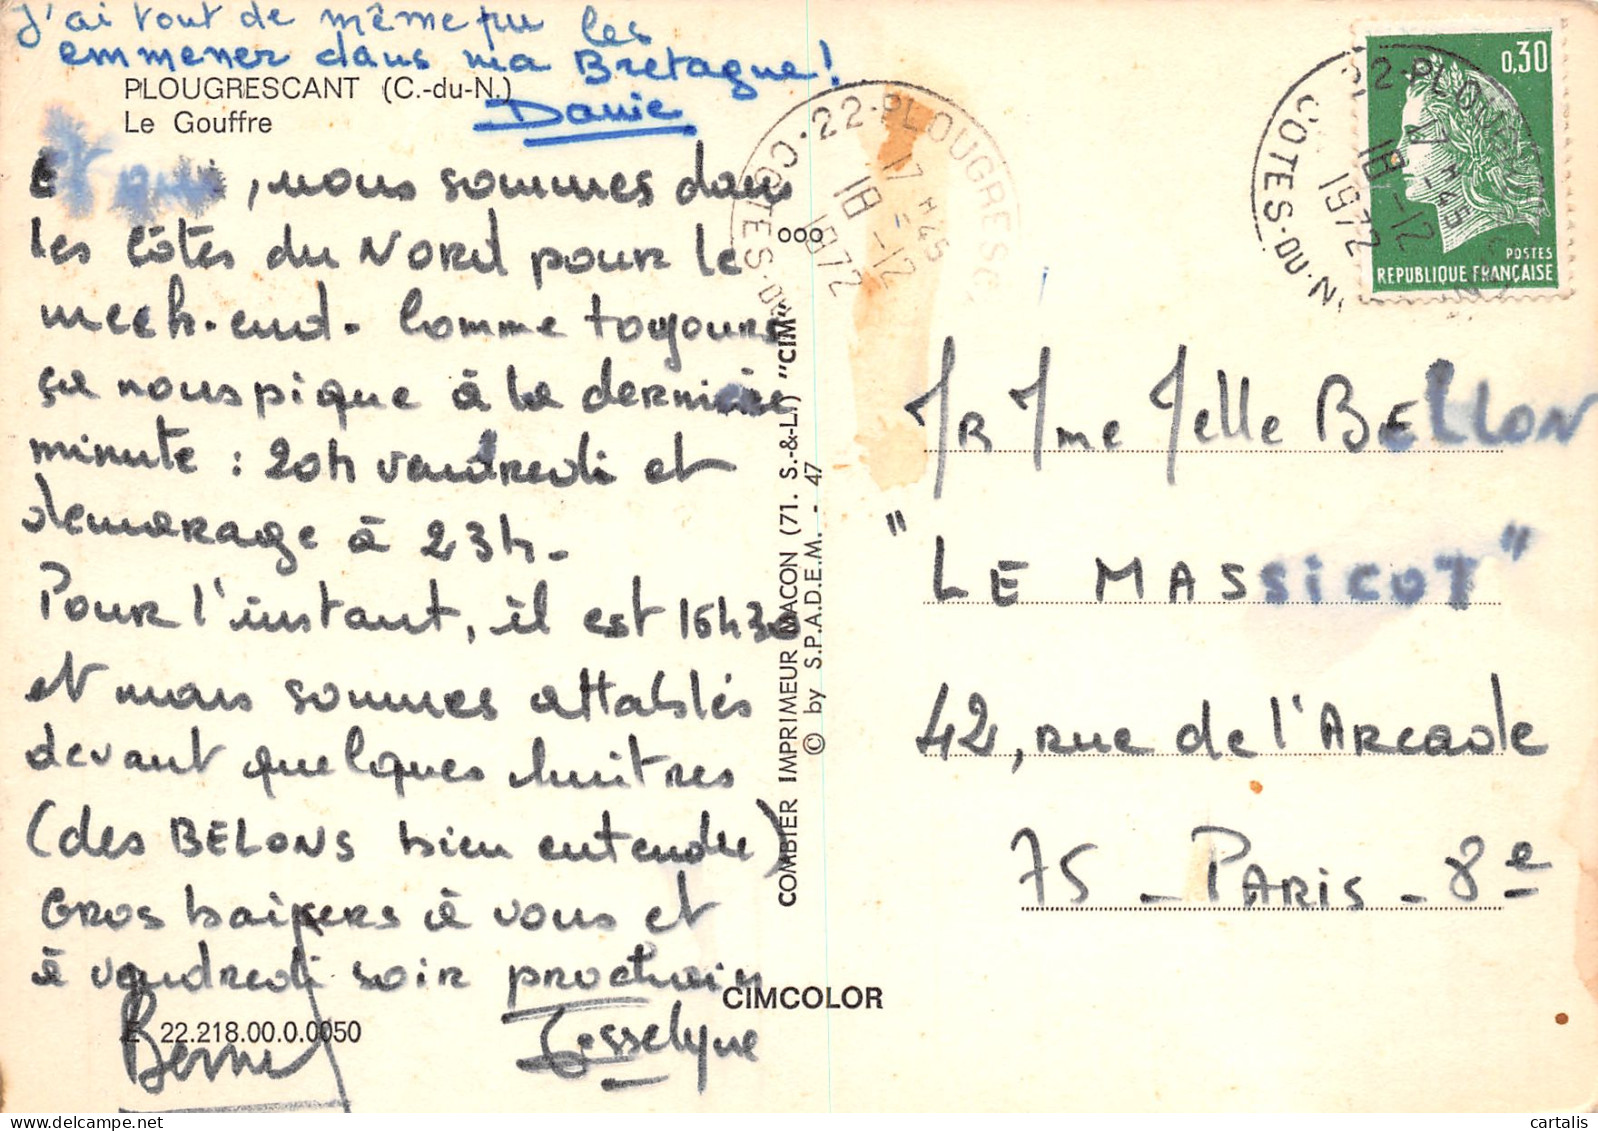 J'ai tout de même pu les
emmener dans ma Bretagne !
Danie
PLOUGRESCANT (C.-du-N.)
Le Gouffre
, nous sommes dans
les Côtes du Nord pour le
week-end - Comme toujours
ça nous pique à la dernière
minute : 20h vendredi et
démarage à 23h -
Pour l'instant, il est 16h30
et nous sommes attablés
devant quelques huitres
(des BÉLONS bien entendu)
Gros baisers à vous et
à vendredi soir prochain
Jesselyne
E 22.218.00.0.0050
COMBIER IMPRIMEUR MACON (71. S.-&-L.) "CIM"
© by S.P.A.D.E.M. - 47
CIMCOLOR
22-PLOUGRESC
17 H 45
18 -12
1972
COTES-DU
0,30
POSTES
REPUBLIQUE FRANÇAISE
17 H 45
18 -12
1972
COTES-DU-N.
Mr Mme Melle BELLON
"LE MASSICOT"
42, rue de l'Arcade
75 - PARIS - 8e
cartalis